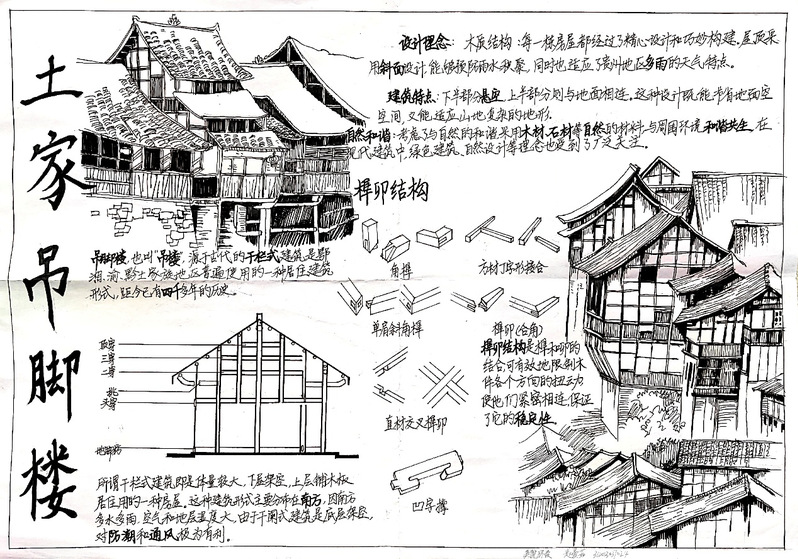 土家吊脚楼
设计理念: 木质结构:每一栋房屋都经过了精心设计和巧妙构建.屋顶采
用斜面设计,能够预防雨水积聚,同时也适应了贵州地区多雨的天气特点.
建筑特点:下半部分悬空,上半部分则与地面相连.这种设计既能节省地面空
空间,又能适应山地复杂的地形.
自然和谐:考虑了与自然的和谐采用木材、石材等自然的材料与周围环境和谐共生,在
现代建筑中,绿色建筑、自然设计等理念也受到了广泛关注。
榫卯结构
角榫
方材丁字形接合
吊脚楼,也叫"吊楼",源于古代的干栏式建筑,是鄂
湘、渝、黔土家族地区普遍使用的一种居住建筑
形式,距今已有四千多年的历史。
单肩斜角榫
榫卯(合角)
榫卯结构是榫和卯的
结合可有效地限制木
件各个方向的扭动
使他们紧密相连,保证
了它的稳定性
三穿
二穿
直材交叉榫卯
凹字榫
所谓干栏式建筑即是体量较大,下层架空,上层铺木板
居住用的一种房屋。这种建筑形式主要分布在南方,因南方
多水多雨,空气和地层湿度大,由于干阑式建筑是底层架空,
对防潮和通风极为有利。